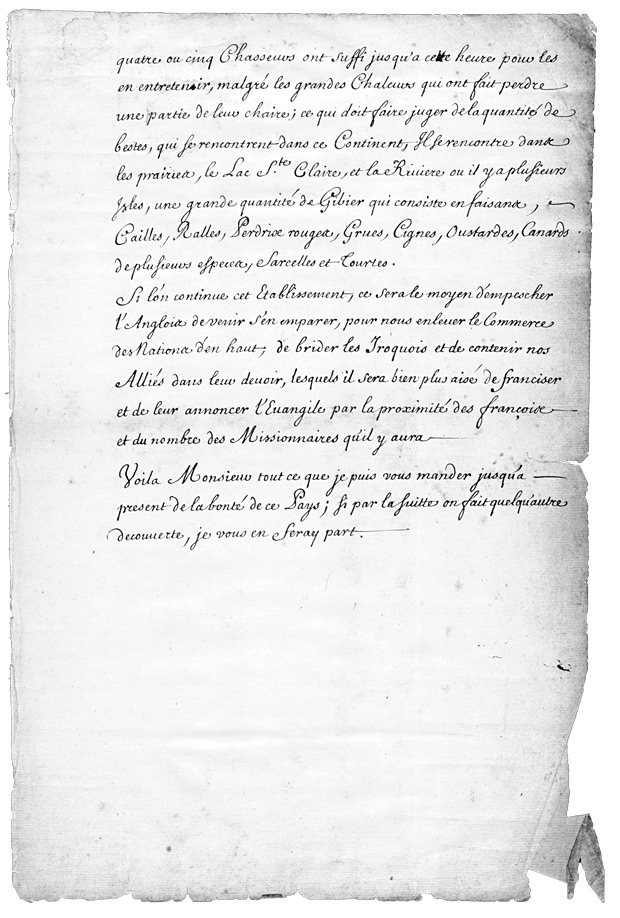 quatre ou cinq Chasseurs ont suffi jusqu'a cette heure pour les
en entretenir, malgré les grandes Chaleurs qui ont fait perdre
une partie de leur chaire; ce qui doit faire juger de la quantité de
bestes, qui se rencontrent dans ce Continent, Il se rencontre dans
les prairies, le Lac S.te Claire, et la Riviere ou il y a plusieurs
Isles, une grande quantité de Gibier qui consiste en faisans,
Cailles, Ralles, Perdrix rouges, Grues, Cignes, Oustardes, Canards
de plusieurs especes, Sarcelles et Tourtes.
Si l'on continue cet Etablissement, ce sera le moyen d'empescher
l'Anglois de venir s'en emparer, pour nous enlever le Commerce
des Nations d'en haut, de brider les Iroquois et de contenir nos
Alliés dans leur devoir, lesquels il sera bien plus aisé de franciser
et de leur annoncer l'Euangile par la proximité des françois
et du nombre des Missionnaires qu'il y aura
Voila Monsieur tout ce que je puis vous mander jusqu'a
present de la bonté de ce Pays; si par la suitte on fait quelqu'autre
decouverte, je vous en seray part.